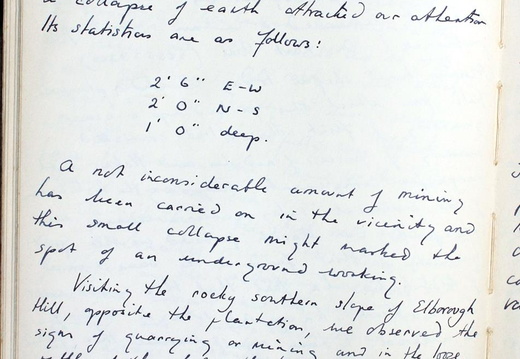 a collapse of earth attracted our attention
Its statistics are as follows:
2' 6" E-W
2' 0" N-S
1' 0" deep.
A not inconsiderable amount of mining
has been carried on in the vicinity and
this small collapse might marked the
spot of an underground working.
Visiting the rocky southern slope of Elborough
Hill, opposite the plantation, we observed the
signs of quarrying or mining and in the